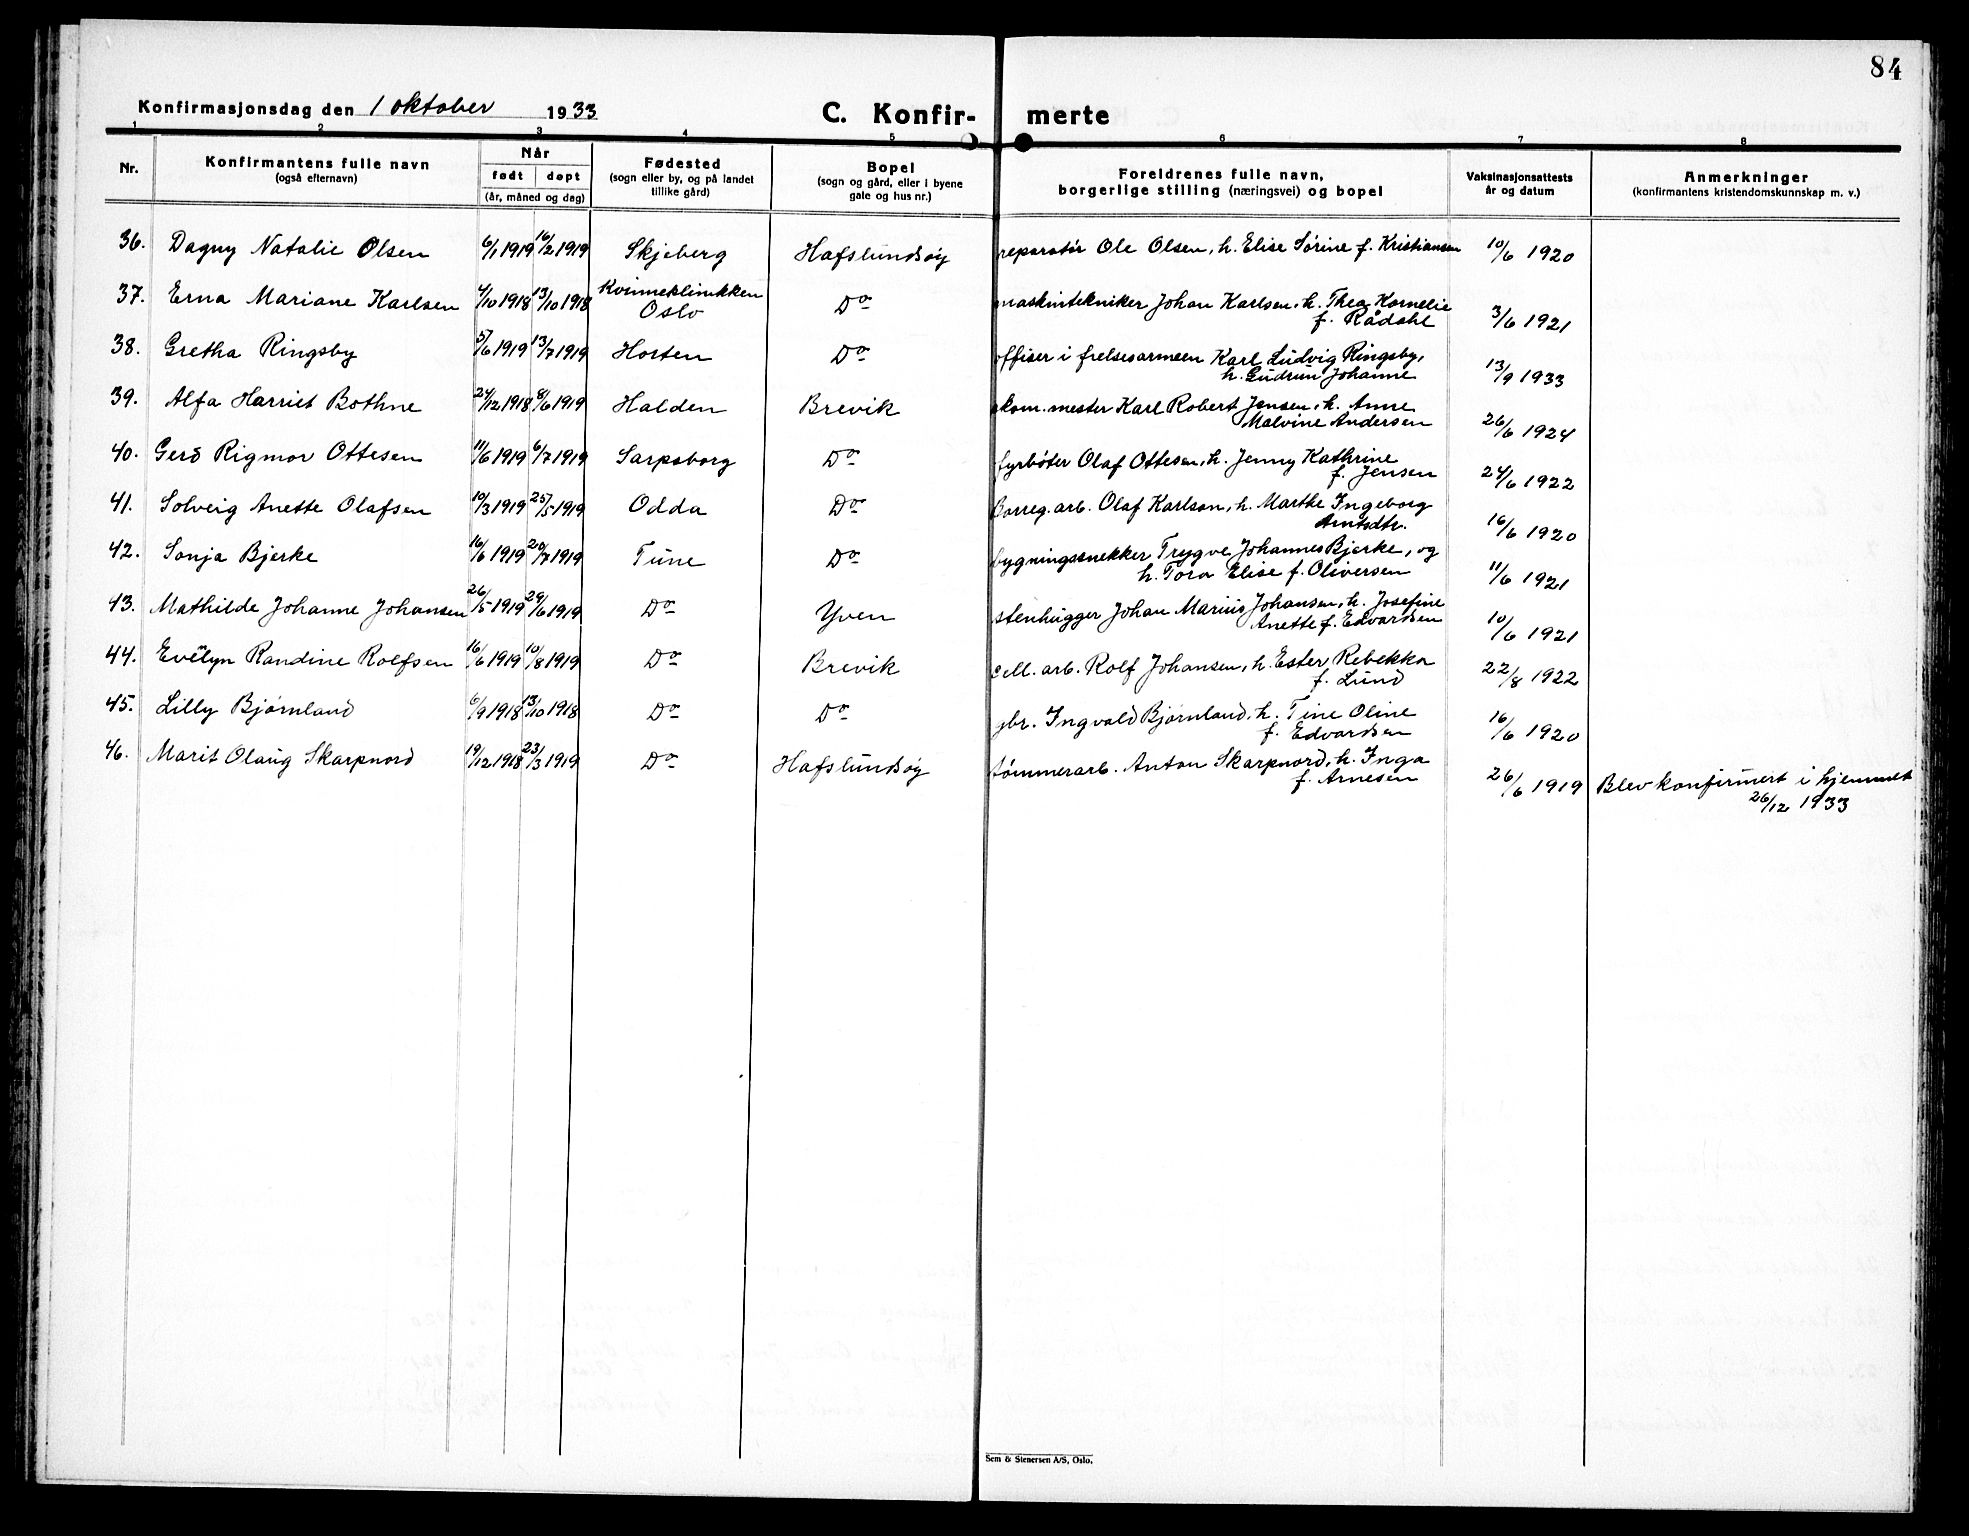 84
Konfirmasjonsdag den 1 oktober 1933
C. Konfir- merte
1 2 3 4 5 6 7 8
Nr.
Konfirmantens fulle navn
(også efternavn)
Når
født døpt
(år, måned og dag)
Fødested
(sogn eller by, og på landet
tillike gård)
Bopel
(sogn og gård, eller i byene
gate og hus nr.)
Foreldrenes fulle navn,
borgerlige stilling (næringsvei) og bopel
Vaksinasjonsattests
år og datum
Anmerkninger
(konfirmantens kristendomskunnskap m. v.)
36. Dagny Natalie Olsen 6/1 1919 16/2 1919 Skjeberg Hafslundsøy reparatør Ole Olsen, h. Elise Sørine f. Kristiansen 10/6 1920
37. Erna Mariane Karlsen 4/10 1918 13/10 1918 Kvinneklinikken Oslo Do maskintekniker Johan Karlsen, h. Thea Kornelie
f. Rådahl 3/6 1921
38. Gretha Ringsby 5/6 1919 13/7 1919 Horten Do offiser i frelsesarmeen Karl Ludvig Ringsby,
h. Gudrun Johanne 13/9 1933
39. Alfa Harriet Bothne 24/12 1918 8/6 1919 Halden Brevik skom.mester Karl Robert Jensen, h. Anne
Malvine Andersen 26/6 1924
40. Gerd Rigmor Ottesen 11/6 1919 6/7 1919 Sarpsborg Do fyrbøter Olaf Ottesen, h. Jenny Kathrine
f. Jensen 24/6 1922
41. Solveig Anette Olafsen 10/3 1919 25/5 1919 Odda Do Borreg. arb. Olaf Karlson, h. Marthe Ingeborg
Arntsdtr. 16/6 1920
42. Sonja Bjerke 16/6 1919 20/7 1919 Tune Do bygningssnekker Trygve Johannes Bjerke, og
h. Tora Elise f. Oliversen 11/6 1921
43. Mathilde Johanne Johansen 26/5 1919 29/6 1919 Do Yven stenhugger Johan Marius Johansen, h. Josefine
Anette f. Edvardsen 10/6 1921
44. Evelyn Randine Rolfsen 16/6 1919 10/8 1919 Do Brevik cell. arb. Rolf Johansen, h. Ester Rebekka
f. Lund 22/8 1922
45. Lilly Bjørnland 6/9 1918 13/10 1918 Do Do gbr. Ingvald Bjørnland, h. Tine Oline
f. Edvardsen 16/6 1920
46. Marit Olaug Skarpnord 19/12 1918 23/3 1919 Do Hafslundsøy tømmerarb. Anton Skarpnord, h. Inga
f. Arnesen 26/6 1919 Blev konfirmert i hjemmet
26/12 1933
Sem & Stenersen A/S, Oslo.